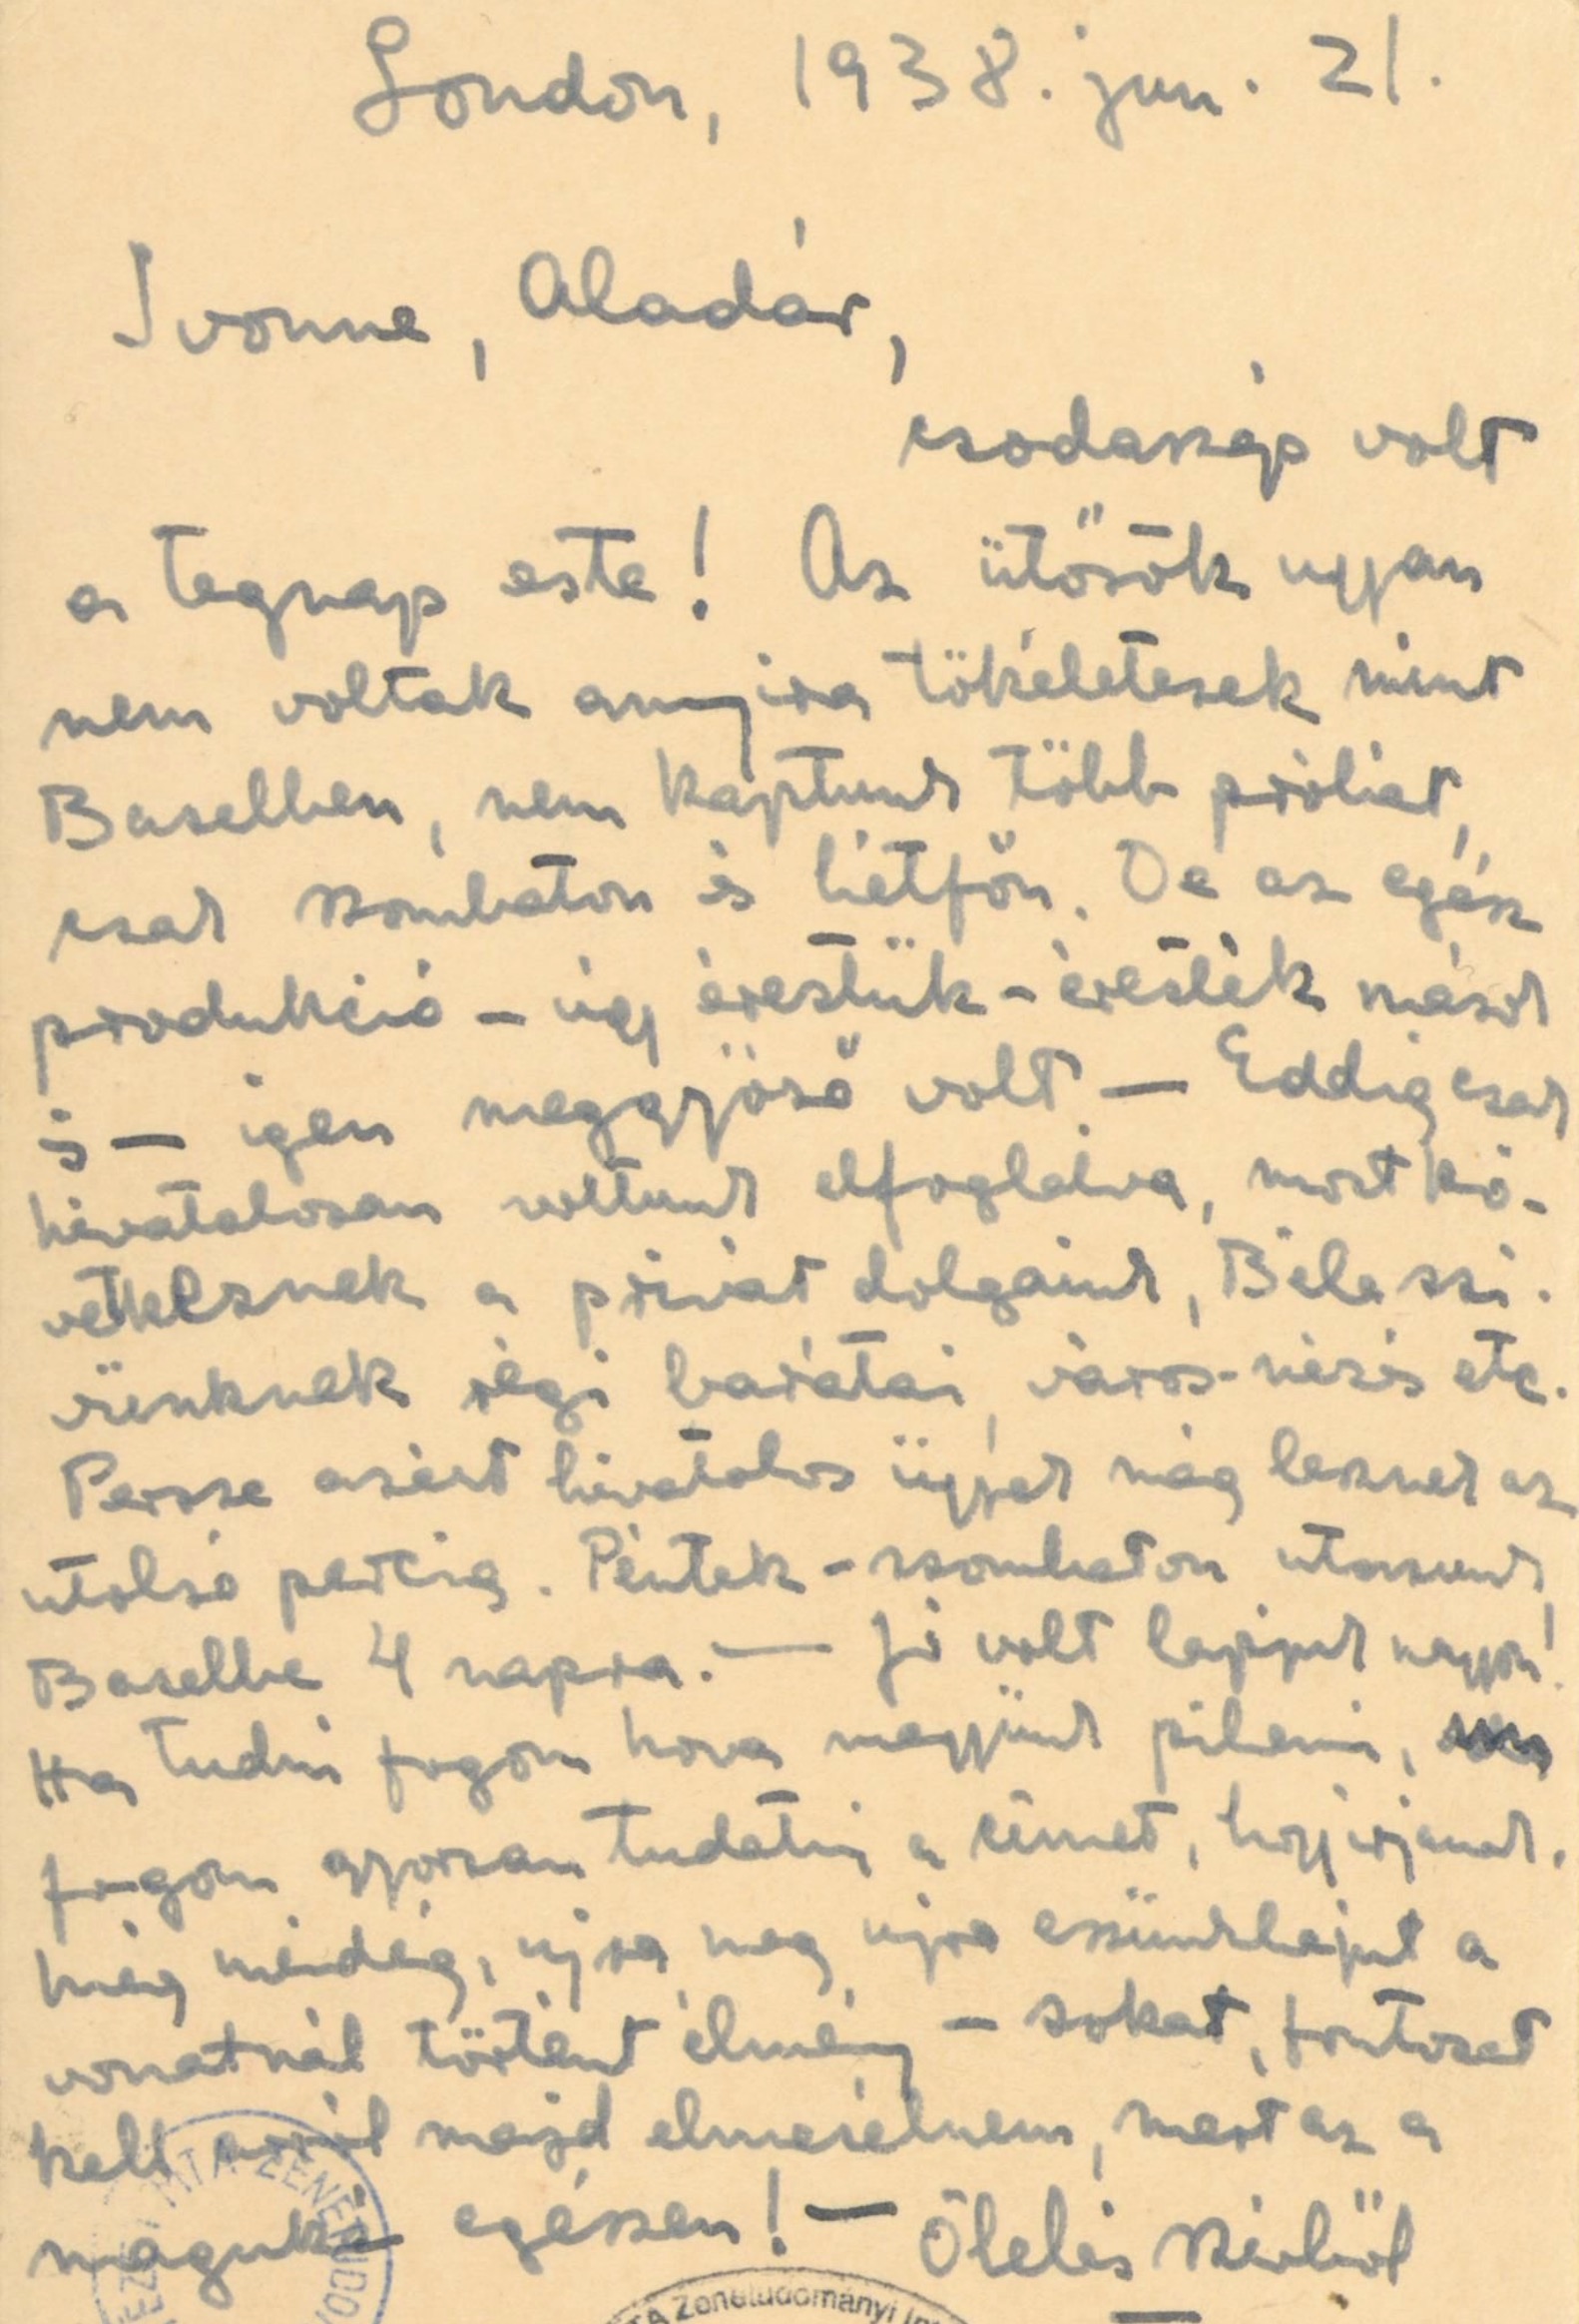 London, 1938. jun. 21.
Ivonne, Aladár,
csodaszép volt
a tegnap este! Az ütősök ugyan
nem voltak annyira tökéletesek mint
Baselben, nem kaptunk több próbát,
csak szombaton és hétfőn. De az egész
produkció – úgy éreztük - érezték mások
is – igen meggyőző volt. – Eddig csak
hivatalosan voltunk elfoglalva, most kö-
vetkeznek a privát dolgaink, Béla szi-
vünknek régi barátai, város-nézés etc.
Persze azért hivatalos ügyek még lesznek az
utolsó percig. Péntek - szombaton utazunk
Baselbe 4 napra. – Jó volt lapjuk nagyon!
Ha tudni fogom hova megyünk pihenni,
fogom gyorsan tudatni a címet, hogy irjanak.
Még mindég, ujra meg ujra eszünkbejut a
vonatnál történt élmény – sokat, fontosat
kell arról majd elmesélnem, mert az a
maguké egészen! – Ölelés szivből
MTA ZENETUDO
MTA Zenetudományi Int